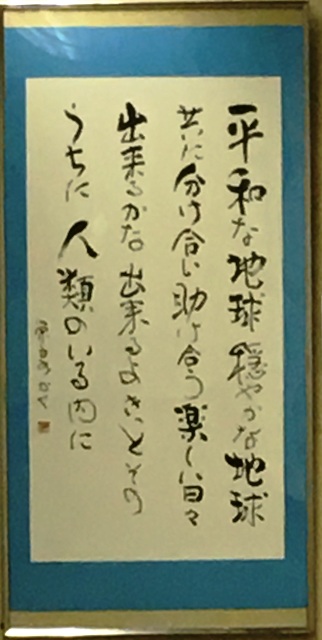 平和な地球 穏やかな地球
共に分け合い助け合う楽しい日々
出来るかな 出来るよきっとその
うちに 人類のいる内に